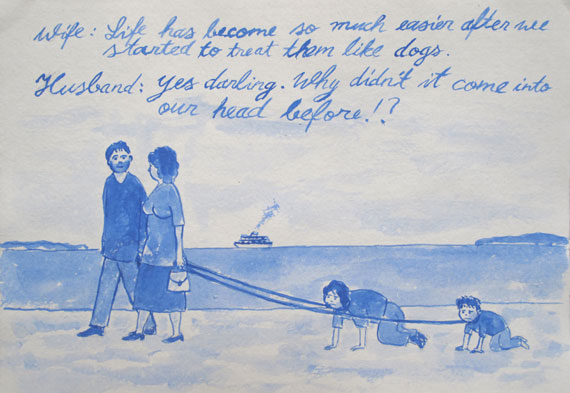 Wife: Life has become so much easier after we
started to treat them like dogs.
Husband: Yes darling. Why didn't it come into
our head before!?